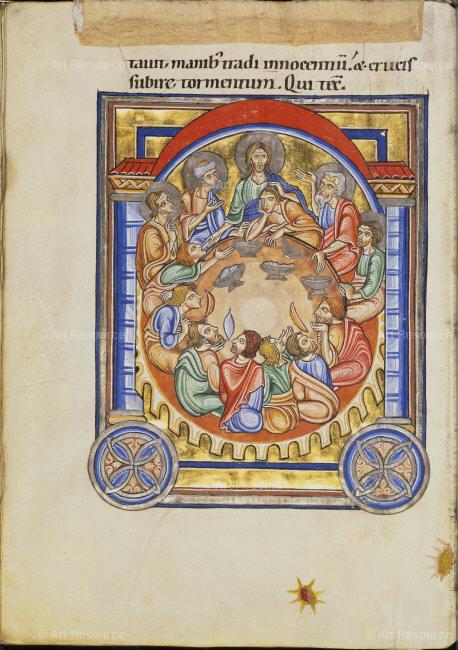 tauit manib; tradi nocentiū. & crucis
subire tormentum. Qui tec̄.
© Art Resource
© Art Resource
© Art Resource
© Art Resource
© Art Resource